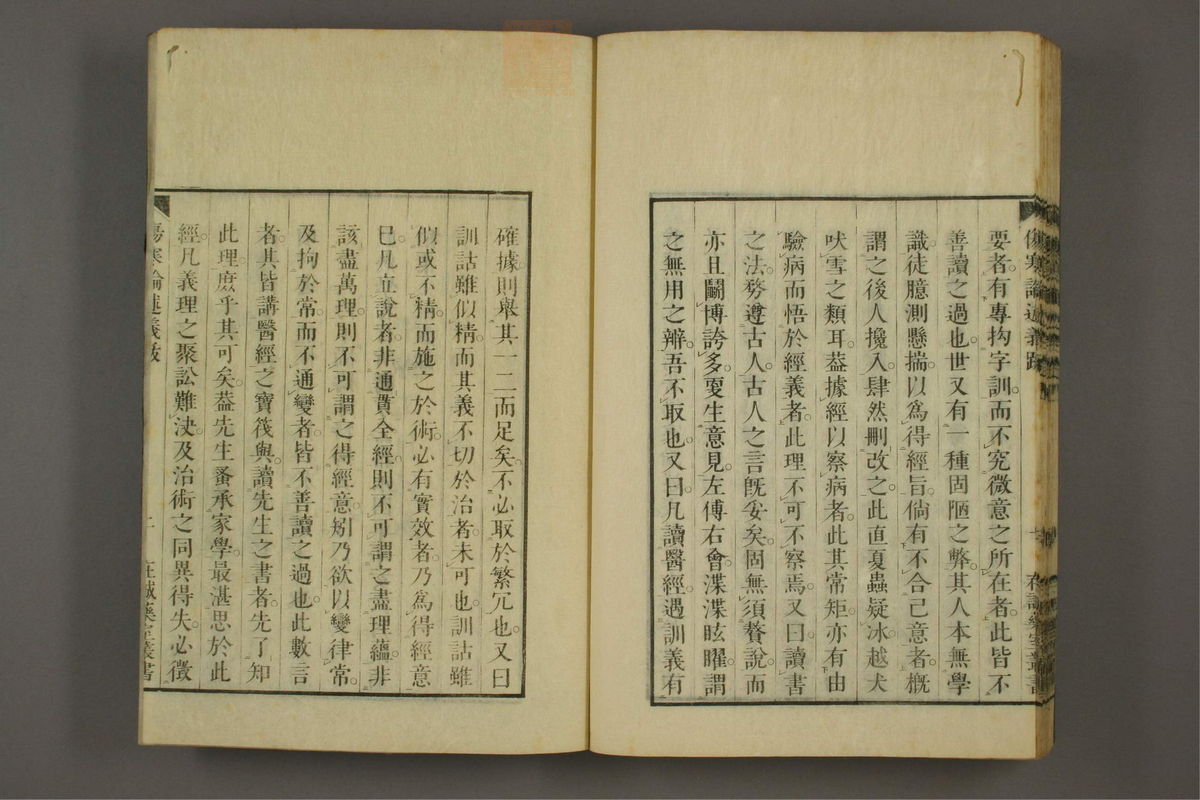 要者。有專拘字訓而不究微意之所在者。此皆不
善讀之過也。世又有一種固陋之弊。其人本無學
識。徒臆測懸揣。以爲得經旨。倘有不合己意者。概
謂之後人攙入。肆然刪改之。此直夏蟲疑冰。越犬
吠雪之類耳。葢據經以察病者。此其常矩。亦有由
驗病而悟於經義者。此理不可不察焉。又曰。讀書
之法。務遵古人。古人之言旣妥矣。固無須贅說。而
亦且鬭博誇多。㪅生意見。左傅右會。渫渫眩曜。謂
之無用之辨。吾不取也。又曰。凡讀醫經。遇訓義有
確據。則舉其一二而足矣。不必取於繁冗也。又曰
訓詁雖似精。而其義不切於治者。未可也。訓詁雖
似或不精。而施之於術。必有實效者。乃爲得經意
已。凡立說者。非通貫全經。則不可謂之盡理蘊。非
該盡萬理。則不可謂之得經意。矧乃欲以變律常。
及拘於常而不通變者。皆不善讀之過也。此數言
者。其皆講醫經之寶筏與。讀先生之書者。先了知
此理。庶乎其可矣。葢先生蚤承家學。最湛思於此
經。凡義理之聚訟難決。及治術之同異得失。必徵
傷寒論述義跋
二
存誠藥室叢書